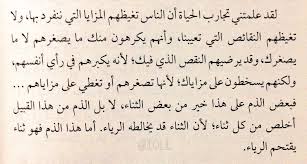 لقد علمتني تجارب الحياة أن الناس تغيظهم المزايا التي ننفرد بها، ولا
تغيظهم النقائص التي تعيبنا، وأنهم يكرهون منك ما يصغرهم لا ما
يصغرك، وقد يرضيهم النقص الذي فيك؛ لأنه يكبرهم في رأي أنفسهم،
ولكنهم يسخطون على مزاياك؛ لأنها تصغرهم أو تغطي على مزاياهم ...
فبعض الذم على هذا خير من بعض الثناء، لا بل الذم من هذا القبيل
أخلص من كل ثناء؛ لأن الثناء قد يخالطه الرياء. أما هذا الذم فهو ثناء
يقتحم الرياء.